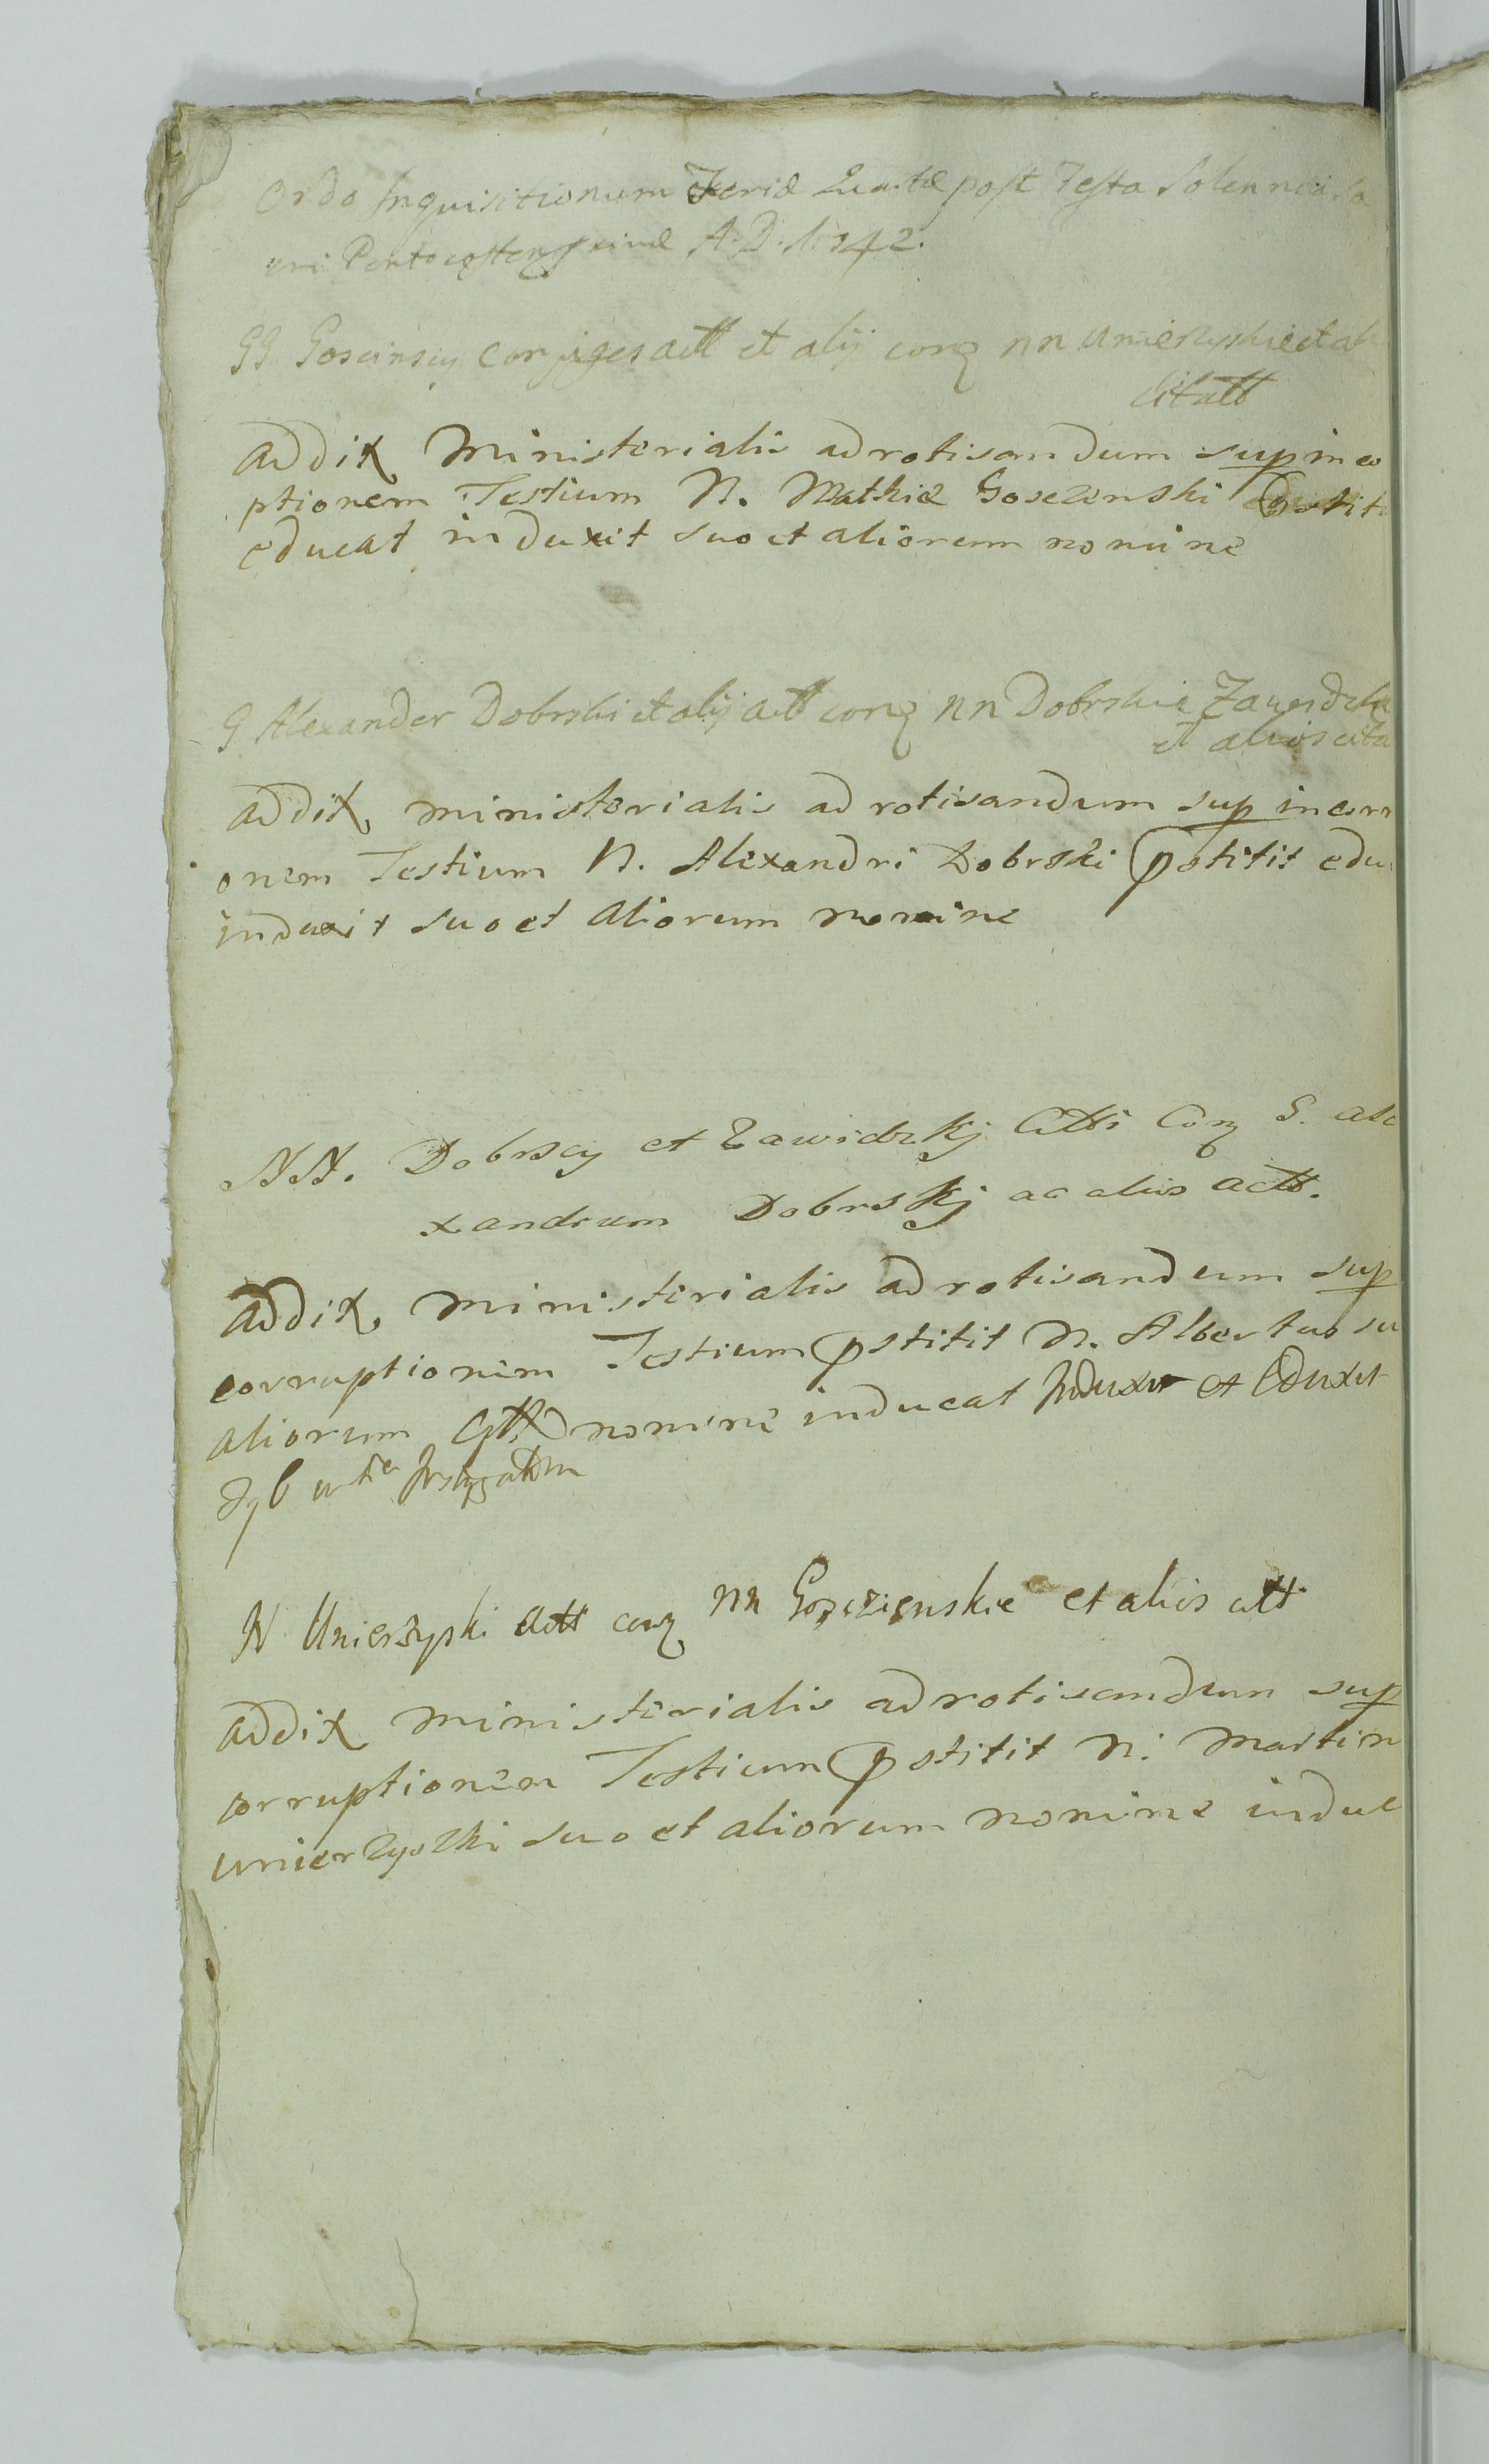 Ordo Inquisitionum Feriæ Quartæ post Festa Solennia Sa
cri Pentecostes A. D. 1742.
GG Goscinscy Conjuges Actt et alij conq NN Unierzyskie et ali
Citatt
Addix Ministerialis ad rotisandum sup inco
ptionem Testium N. Mathiæ Gosczenski pstiti
educat induxit suo et aliorum nomine
G Alexander Dobrski et alij Actt conq NN Dobrskie Zawidzkie
et alios cita
Addix, ministerialis ad rotisandum sup incorr
onem Testium N. Alexandri Dobrski pstitit edu
induxit suo et aliorum nomine
NN. Dobrscy et Zawidzkj Citti Conq G. ale
xandrum Dobrskj ac alios actt.
Addix, ministerialis ad rotisandum sup
corruptionem Testium pstitit N. Albertus su
aliorum Citt nomine inducat Induxit et Eduxit
N Unierzyski Actt conq NN Gosczienskie et alios citt
Addix ministerialis ad rotisandum sup
corruptionem Testium pstitit N. Martin
Unierzyski suo et aliorum nomine induc